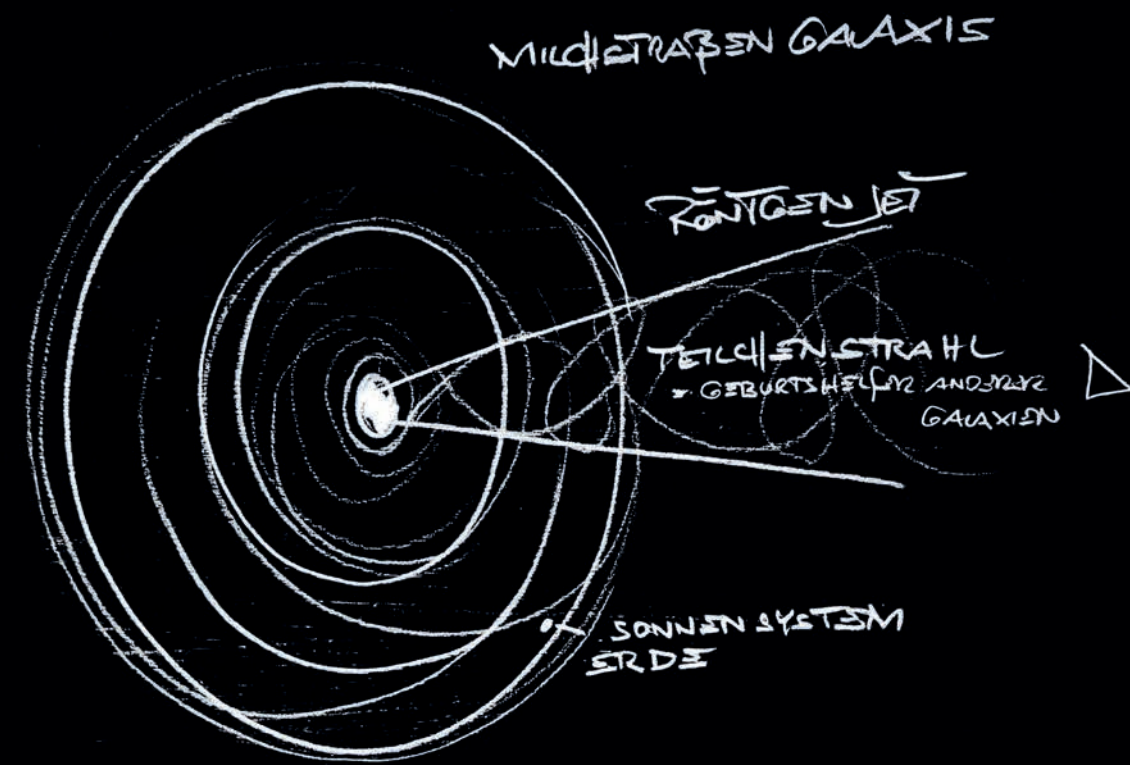 MILCHSTRAßEN GALAXIS
RÖNTGEN JET
TEILCHENSTRAHL
- GEBURTSHELFER ANDERER
GALAXIEN
SONNENSYSTEM
ERDE